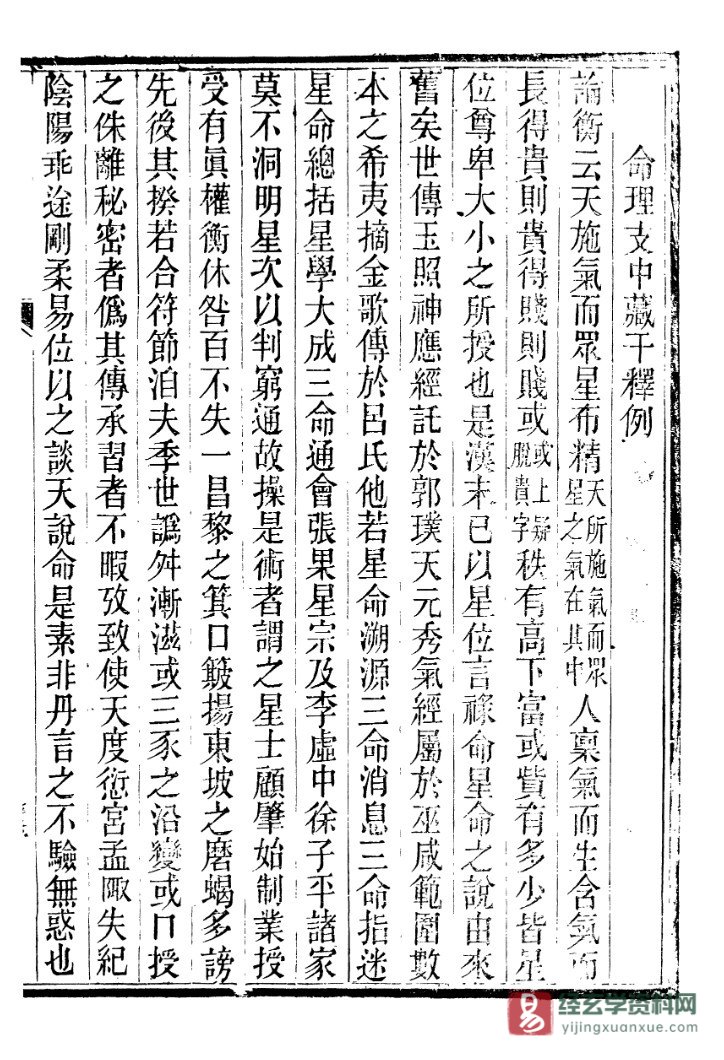 命理支中藏干釋例
論衡云天施氣而眾星布精天所施氣而眾星之氣在其中人稟氣而生含氣而
長得貴則貴得賤則賤或或上疑脫貴字秩有高下富或貲有多少皆星
位尊卑大小之所授也是漢末已以星位言祿命星命之說由來
舊矣世傳玉照神應經託於郭璞天元秀氣經屬於巫咸範圍數
本之希夷摘金歌傳於呂氏他若星命溯源三命消息三命指迷
星命總括星學大成三命通會張果星宗及李虛中徐子平諸家
莫不洞明星次以判窮通故操是術者謂之星士顧肇始制業授
受有眞權衡休咎百不失一昌黎之箕口簸揚東坡之磨蝎多謗
先後其揆若合符節洎夫季世譌舛漸滋或三豕之沿變或口授
之侏離秘密者僞其傳承習者不暇攷致使天度愆宮孟陬失紀
陰陽乖途剛柔易位以之談天說命是素非丹言之不驗無惑也
易 经玄学资料网
yijingxuanxue.com